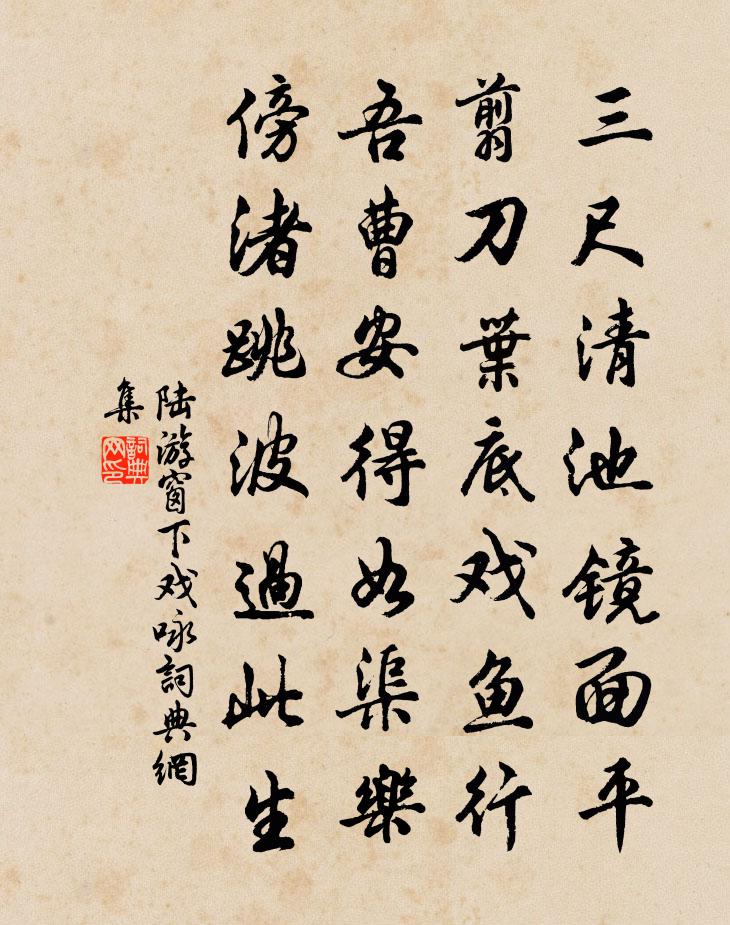 三尺清池镜面平
翦刀葉底戏鱼行
吾曹安得如渠樂
傍渚跳波過此生
陆游窗下戏咏詞典網
集
詞典
网印